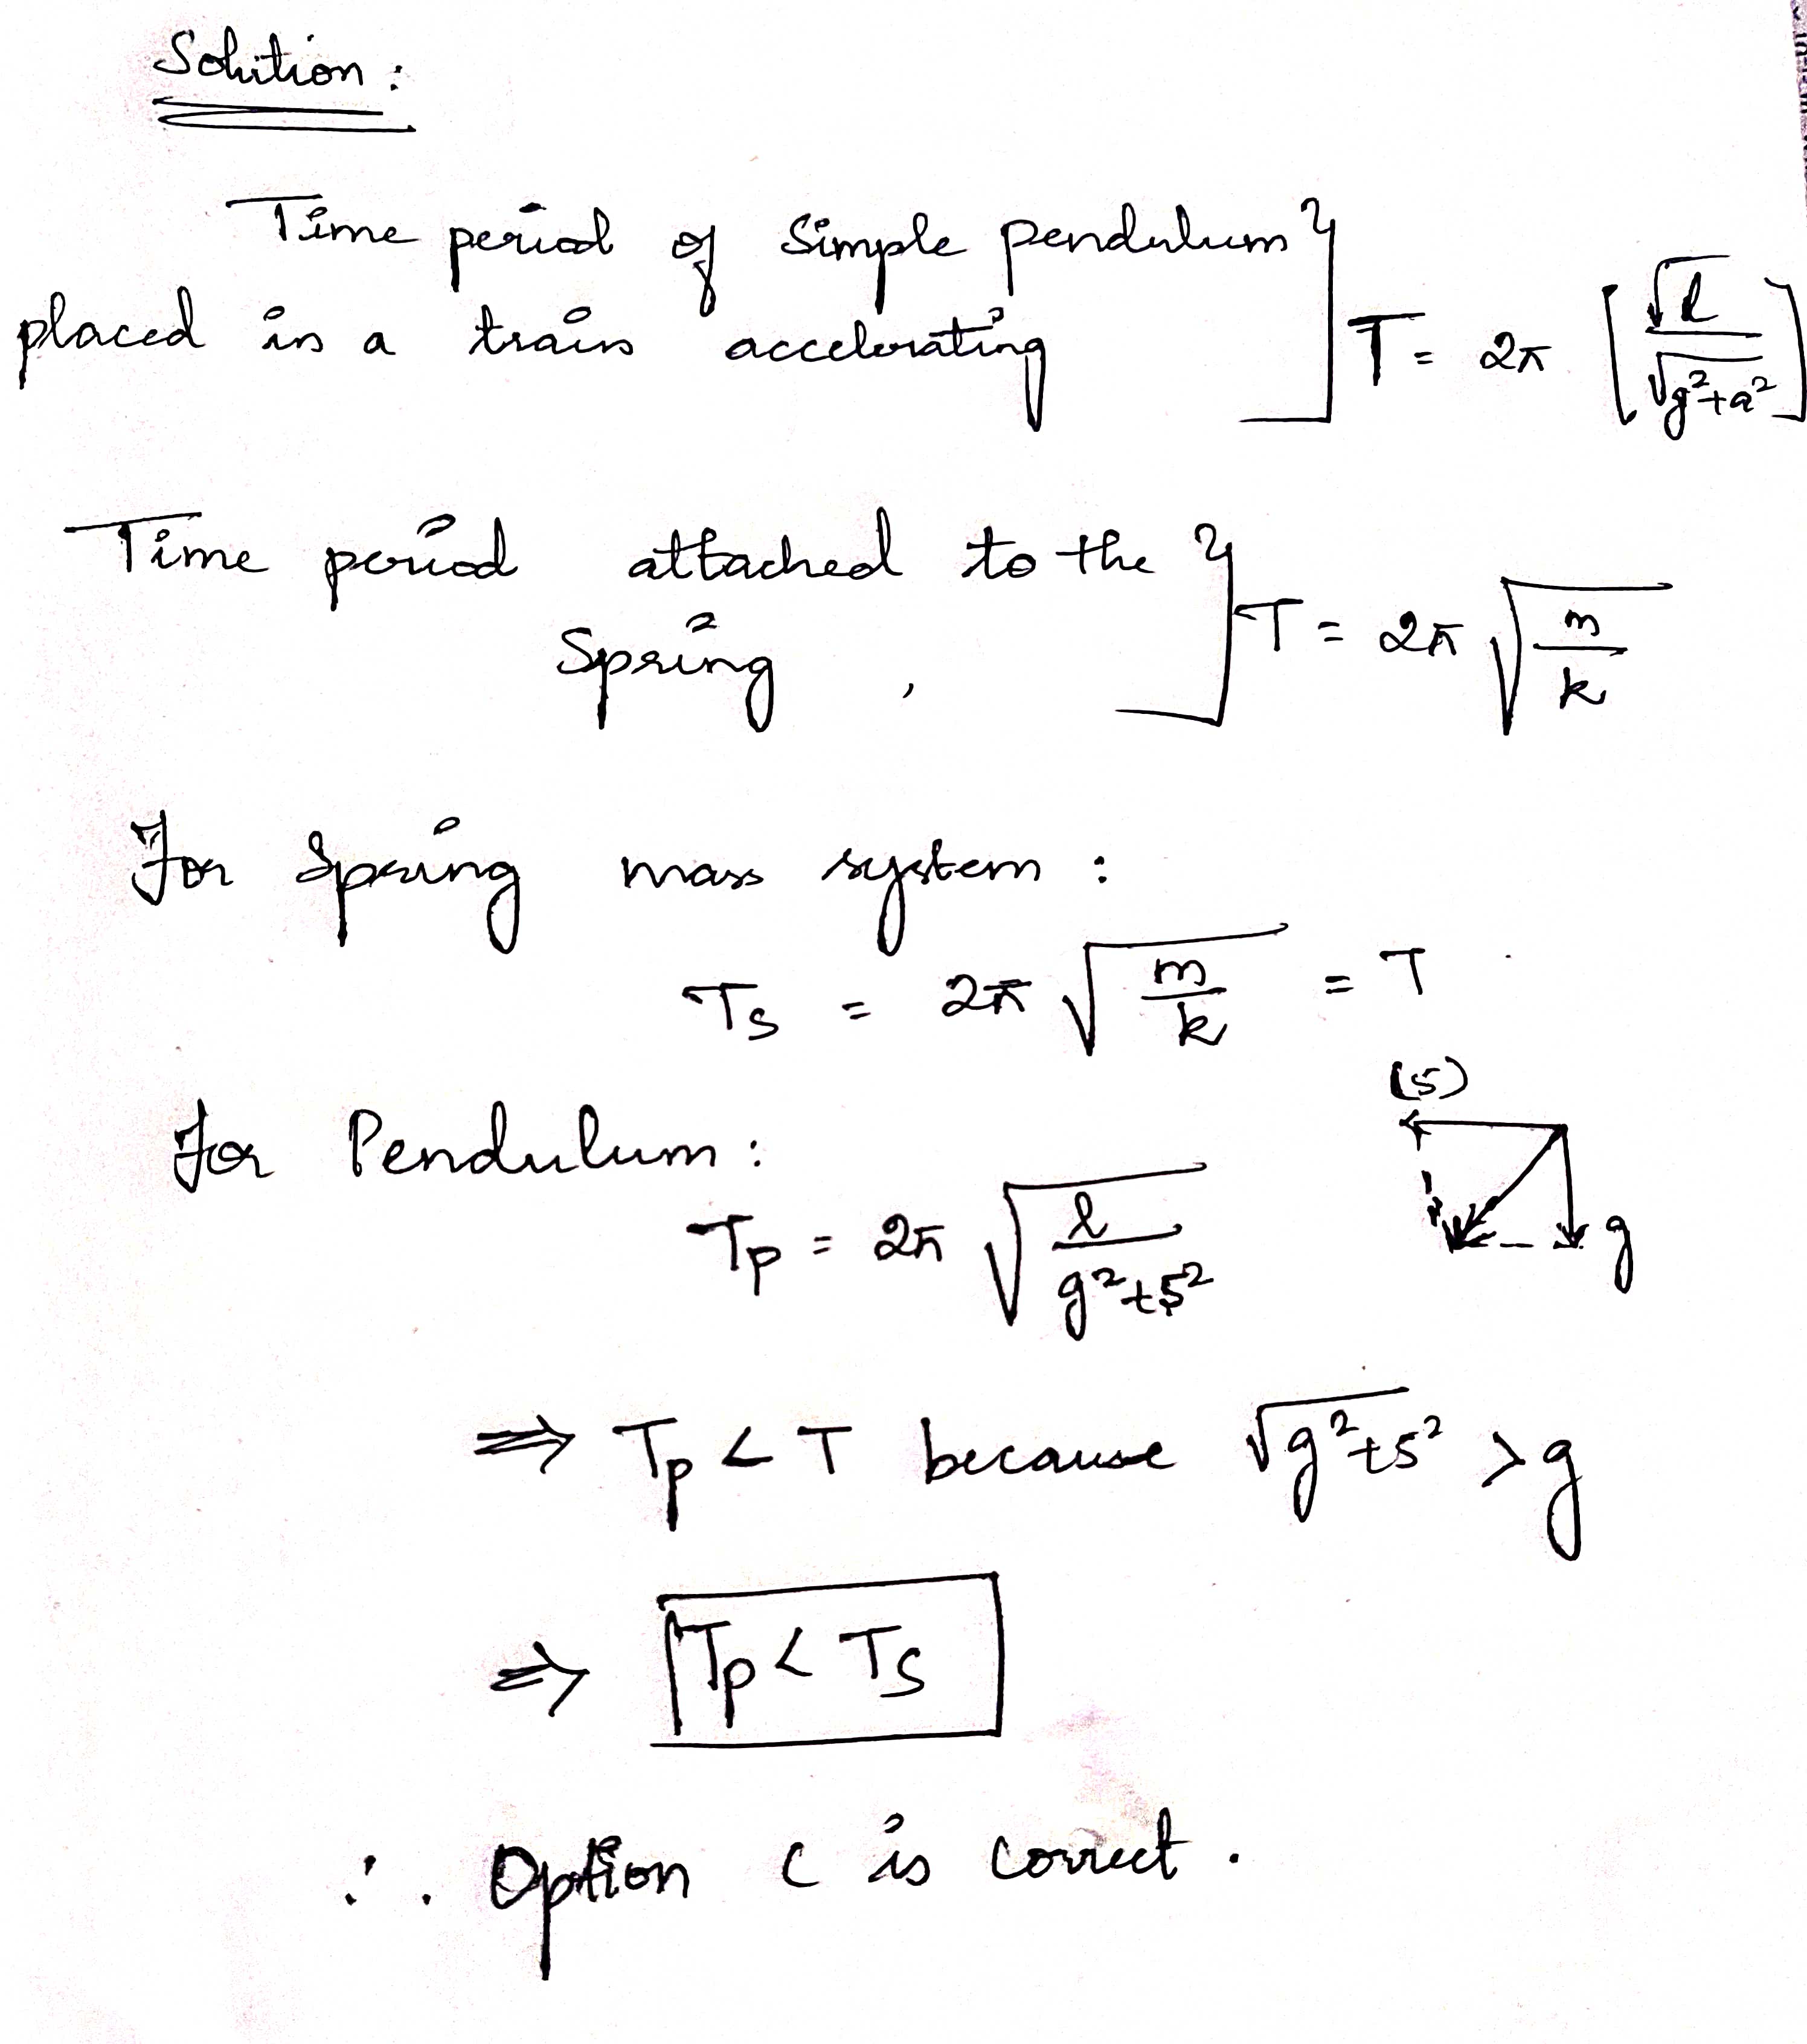 Solution:
Time period of simple pendulum
placed in a train accelerating } T = 2π [√l / √g²+a²]
Time period attached to the
Spring , } T = 2π √(m/k)
For Spring mass system :
Ts = 2π √(m/k) = T
(5)
For Pendulum:
Tp = 2π √(l / g²+5²)
g
⇒ Tp < T because √g²+5² > g
⇒ Tp < Ts
∴ Option C is correct.